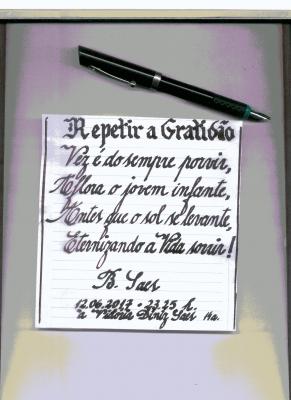 Repetir a Gratidão
Vez é do sempre porvir,
Aflora o jovem infante,
Antes que o sol se levante,
Eternizando a Vida sorrir!
B. Saes
12.06.2017 - 23.25 h.
a Victoria Diniz Saes 14a.